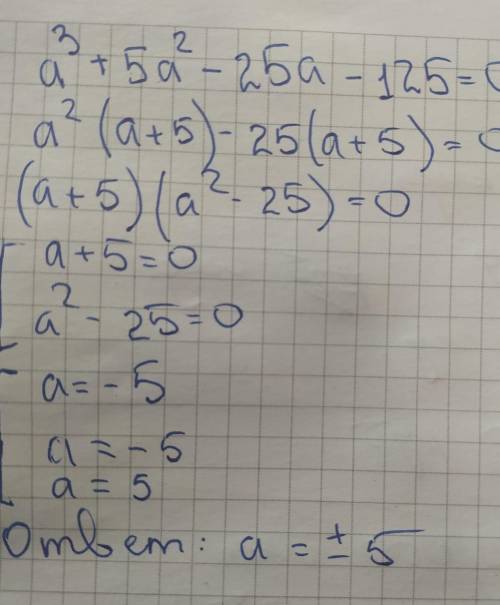 a³ + 5a² - 25a - 125 = 0
a² (a + 5) - 25(a + 5) = 0
(a + 5) (a² - 25) = 0
[ a + 5 = 0
a² - 25 = 0
[ a = - 5
a = - 5
a = 5
Ответ: a = ± 5